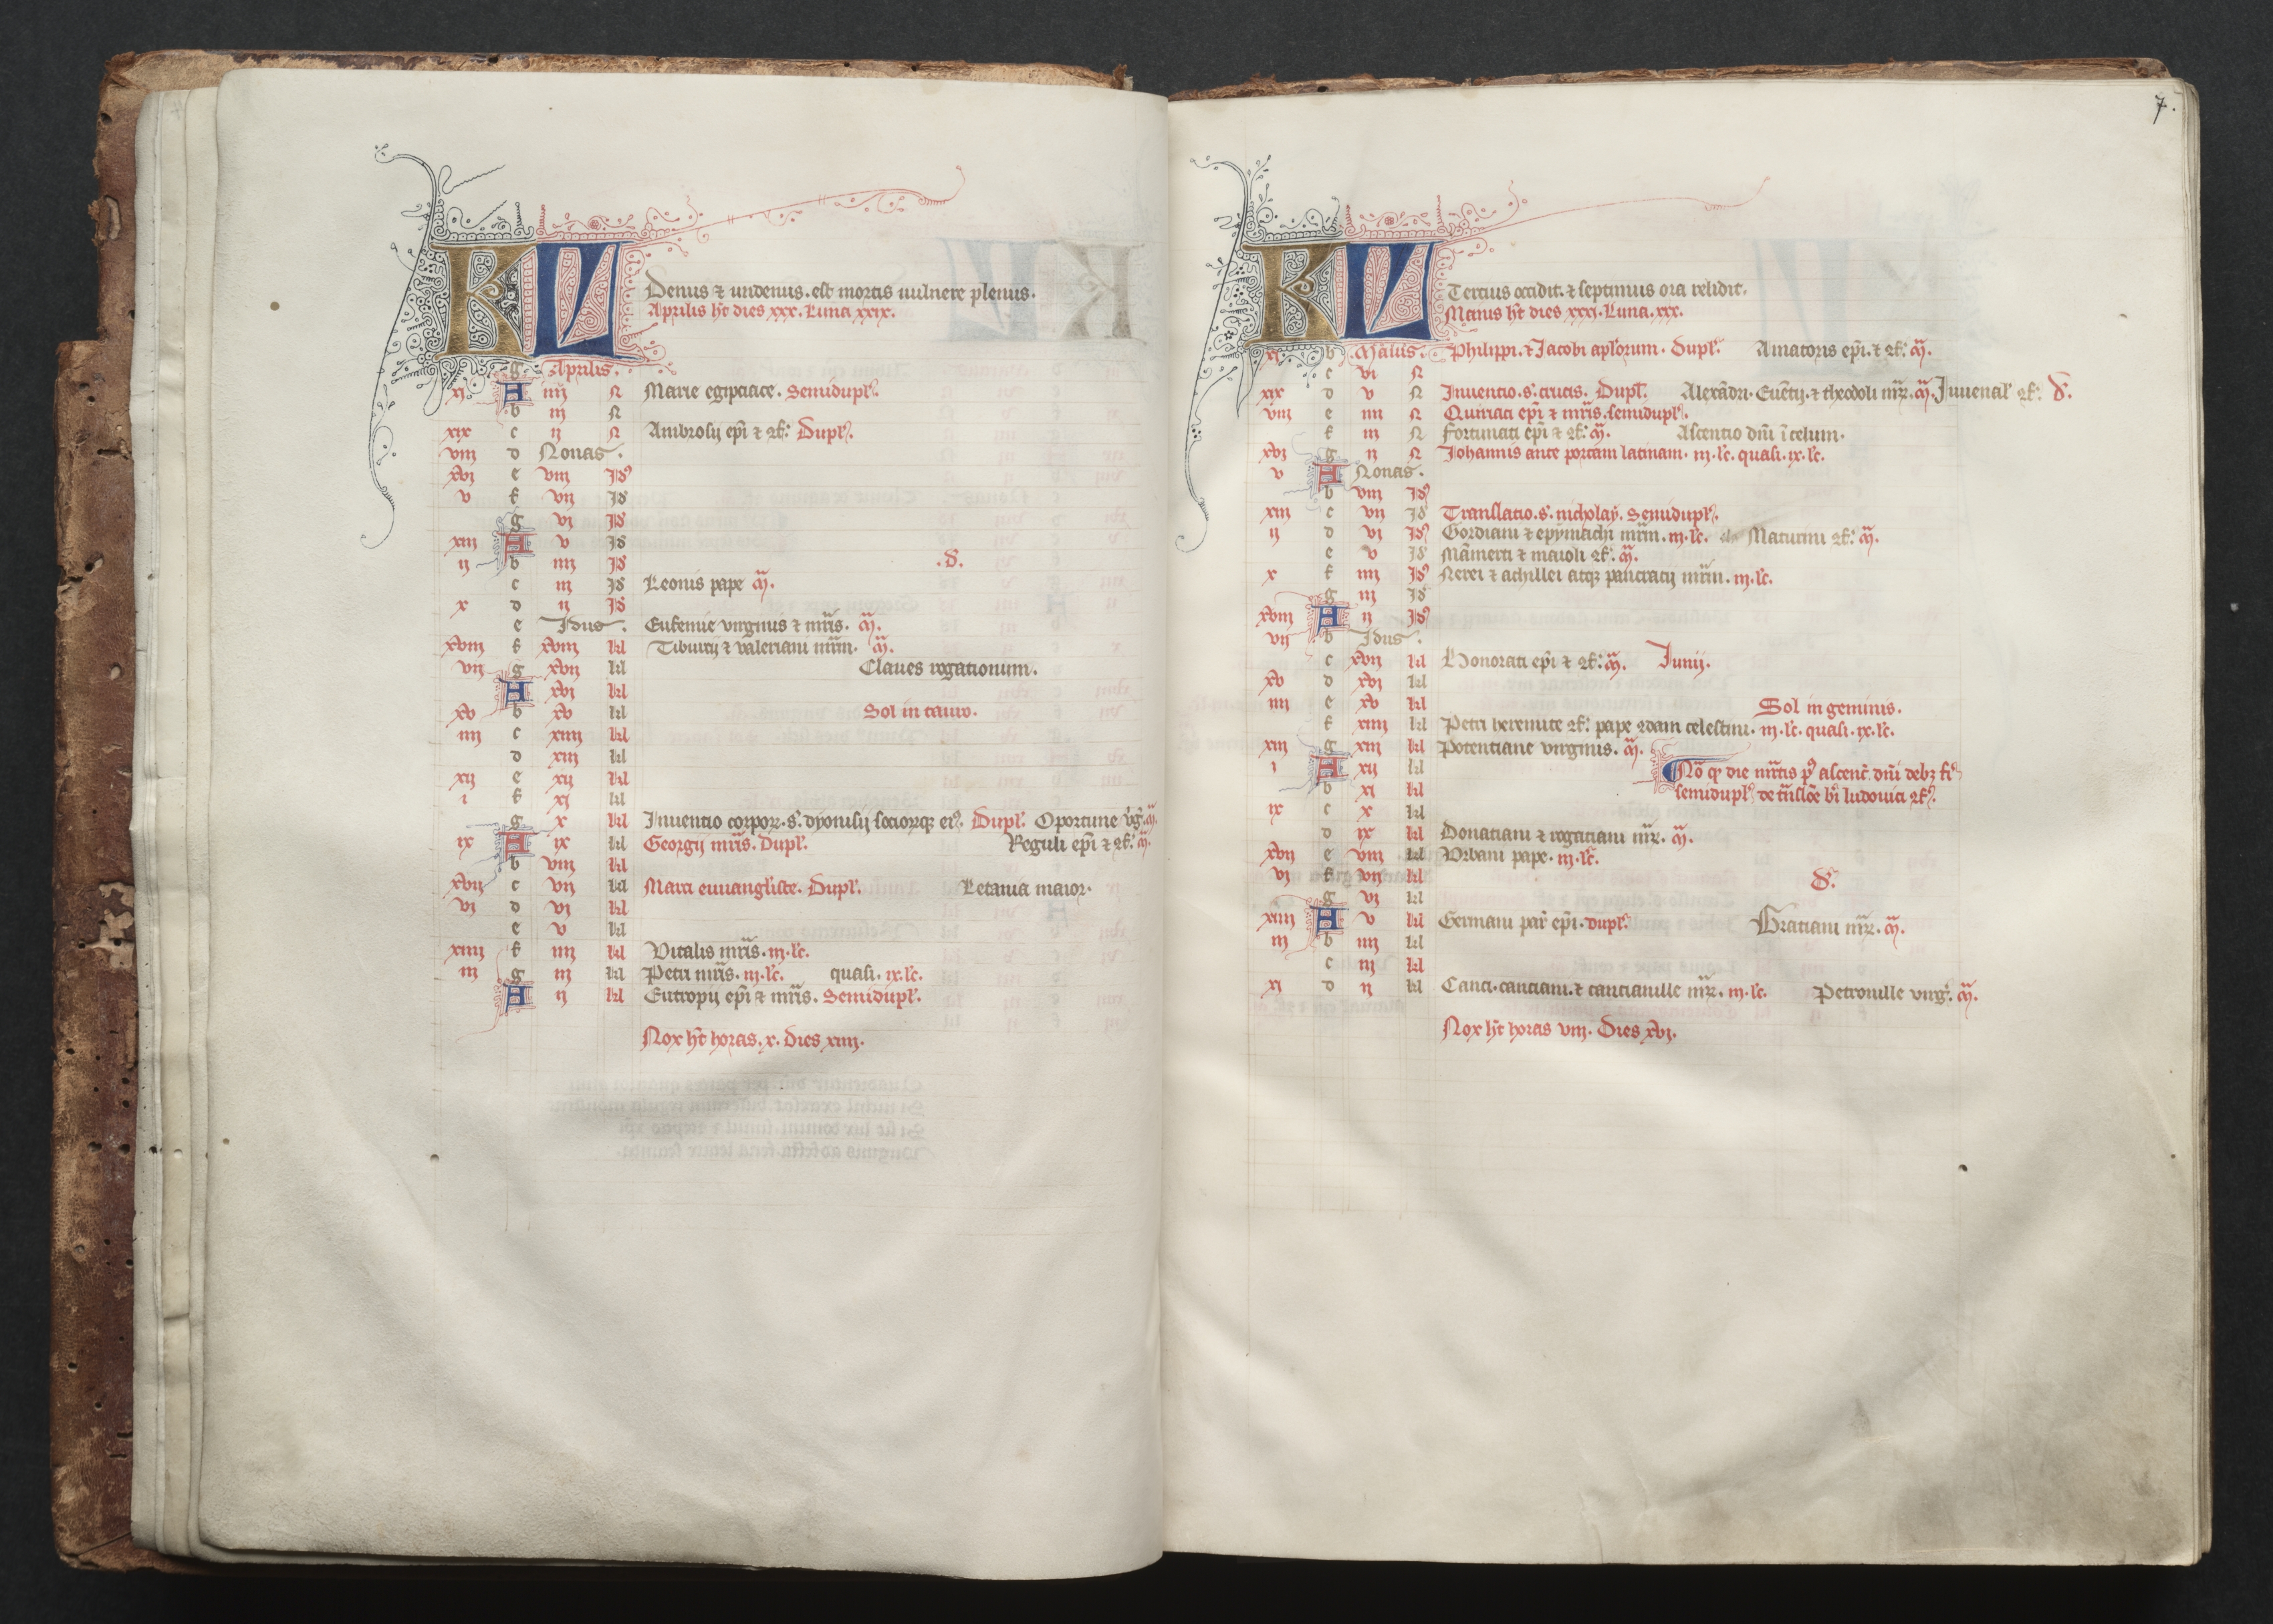 KL
Denus ⁊ undenus. est mortis uulnere plenus.
Aprilis hēt dies xxx. Luna xxix.
g Aprilis.
xj A iiij N Marie egiptiace. Semidupl'.
b iij N
xix c ij N Ambrosij ep̄i ⁊ ꝯf. Dupl'.
viij d Nonas.
xvj e viij Id'
v f vij Id'
g vj Id'
xiij A v Id'
ij b iiij Id' .D.
c iij Id' Leonis pape m̄.
x d ij Id'
e Idus. Eufemie virginis ⁊ mr̄is. m̄.
xviij f xviij kl Tiburcij ⁊ valeriani mr̄m. m̄.
vij g xvij kl Claues rogationum.
A xvj kl
xv b xv kl Sol in tauro.
iiij c xiiij kl
d xiij kl
xij e xij kl
i f xj kl
g x kl Inuentio corpor̄. s̄. dyonisij sociorūqꝫ ei'. Dupl'. Oportune v̄g. m̄.
ix A ix kl Georgij mr̄is. Dupl'. Reguli ep̄i ⁊ ꝯf. m̄.
b viij kl
xvij c vij kl Marci euuangl'iste. Dupl'. Letania maior.
vj d vj kl
e v kl
xiiij f iiij kl Vitalis mr̄is. iij. l'c.
iij g iij kl Petri mr̄is. iij. l'c. quasi. ix. l'c.
A ij kl Eutropij ep̄i ⁊ mr̄is. Semidupl'.
Nox hēt horas. x. Dies xiiij.
7.
KL
Tercius occidit. ⁊ septimus ora relidit.
Maius hēt dies xxxi. Luna. xxx.
xj b Maius. Philippi. ⁊ Jacobi apl'orum. Dupl'. Amatoris ep̄i. ⁊ ꝯf. m̄.
c vi N
xix d v N Inuentio. s̄. crucis. Dupl'. Alexādri. Euētij. ⁊ theodoli mr̄. m̄. Juuenal' ꝯf. D.
viij e iiij N Quiriaci ep̄i ⁊ mr̄is. semidupl'.
f iij N Fortunati ep̄i ⁊ ꝯf. m̄. Ascentio dn̄i ī celum.
xvj g ij N Johannis ante portam latinam. iij. l'c. quasi. ix. l'c.
v A Nonas.
b viij Id'
xiij c vij Id' Translatio. s̄. nicholaij. Semidupl'.
ij d vj Id' Gordiani ⁊ epymachi mr̄m. iij. l'c. Maturini ꝯf. m̄.
e v Id' Māmerti ⁊ maioli ꝯf. m̄.
x f iiij Id' Nerei ⁊ achillei atqꝫ pancracij mr̄m. iij. l'c.
g iij Id'
xviij A ij Id'
vij b Idus.
c xvij kl Honorati ep̄i ⁊ ꝯf. m̄. Junij.
xv d xvj kl
iiij e xv kl Sol in geminis.
f xiiij kl Petri heremite ꝯf. pape ꝯdam celestini. iij. l'c. quasi. ix. l'c.
xij g xiij kl Potentiane virginis. m̄.
i A xij kl Nō qͥ die mr̄tis p' ascenc̄. dn̄i debꝫ fi'
b xj kl semidupl' de tn̄slōe b̄i ludouici ꝯf.
ix c x kl
d ix kl Donatiani ⁊ rogatiani mr̄. m̄.
xvij e viij kl Vrbani pape. iij. l'c.
vj f vij kl D.
g vj kl
xiiij A v kl Germani par' ep̄i. dupl'. Gratiani mr̄. m̄.
iij b iiij kl
c iij kl
xj d ij kl Canci. canciani. ⁊ cancianille mr̄. iij. l'c. Petronille virg'. m̄.
Nox hēt horas viij. Dies xvj.